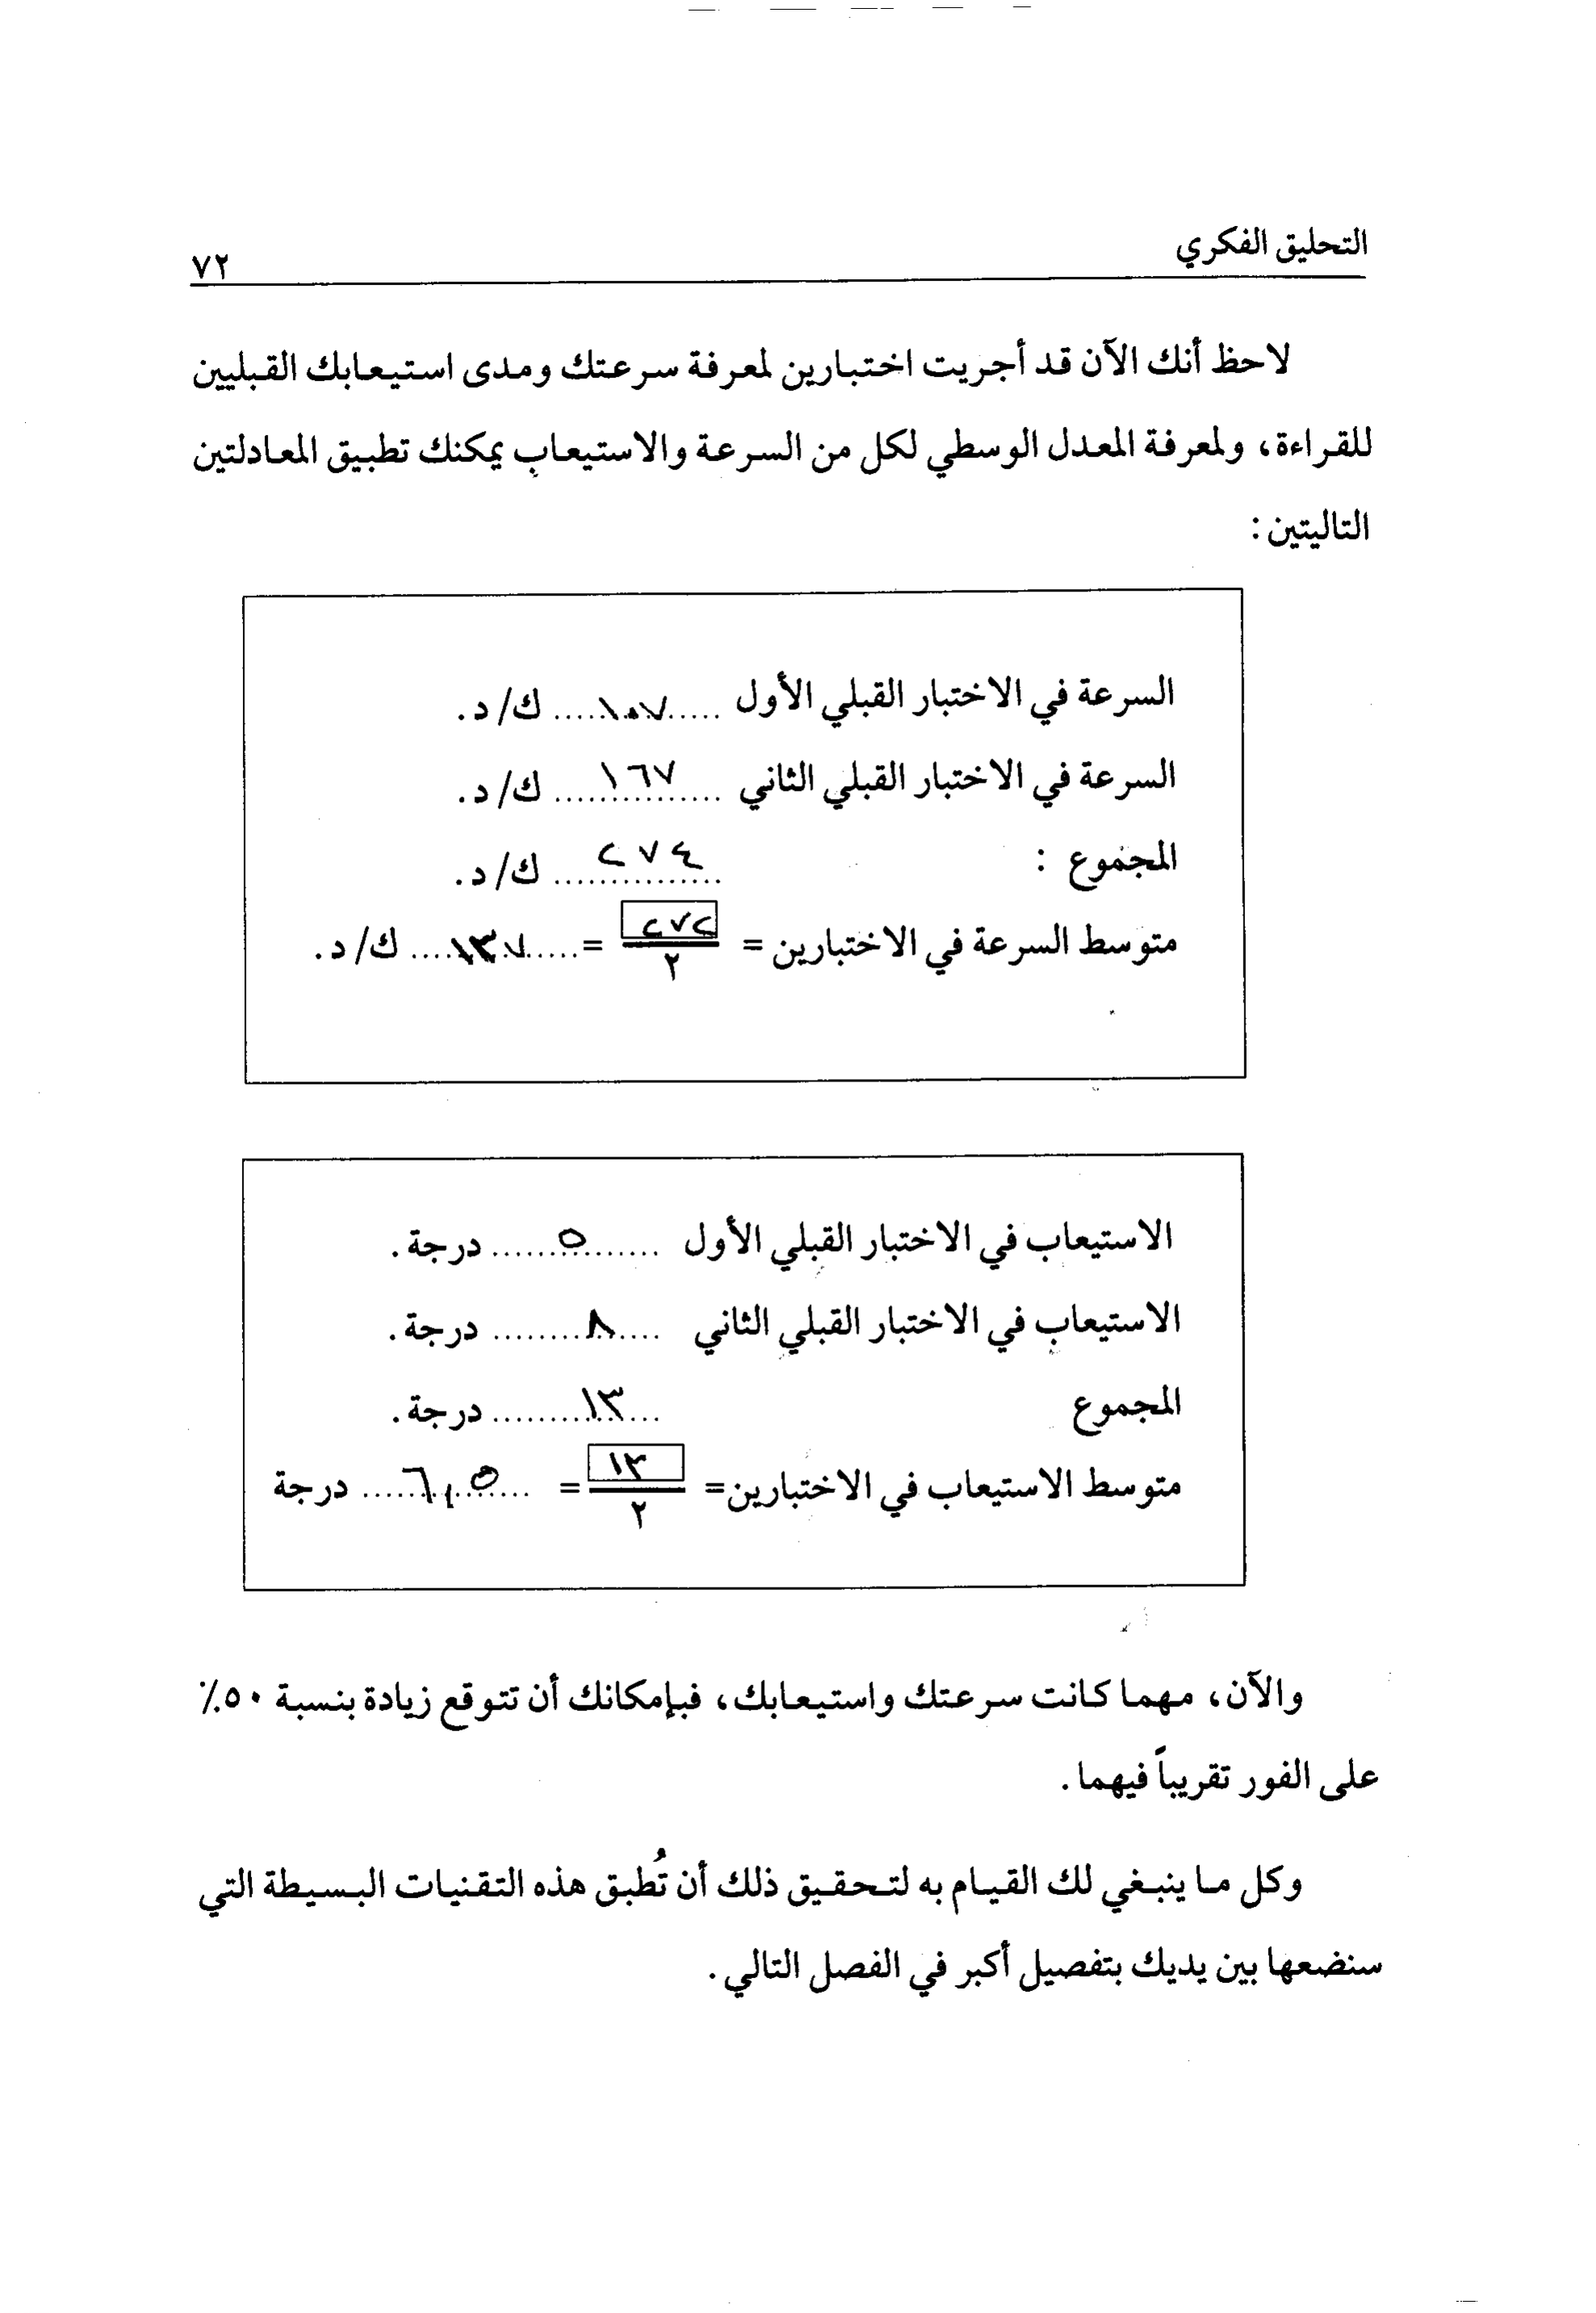 التحليق الفكري
٧٢
لاحظ أنك الآن قد أجريت اختبارين لمعرفة سرعتك ومدى استيعابك القبليين
للقراءة، ولمعرفة المعدل الوسطي لكل من السرعة والاستيعاب يمكنك تطبيق المعادلتين
التاليتين :
السرعة في الاختبار القبلي الأول ......١٠٧...... ك/د.
السرعة في الاختبار القبلي الثاني ......١٦٧...... ك/د.
المجموع : ......٢٧٤...... ك/د.
متوسط السرعة في الاختبارين = ٢٧٢ / ٢ = ......١٣٧...... ك/د.
الاستيعاب في الاختبار القبلي الأول ......٥...... درجة.
الاستيعاب في الاختبار القبلي الثاني ......٨...... درجة.
المجموع ......١٣...... درجة.
متوسط الاستيعاب في الاختبارين = ١٣ / ٢ = ......٦,٥...... درجة
والآن، مهما كانت سرعتك واستيعابك، فبإمكانك أن تتوقع زيادة بنسبة ٥٠٪
على الفور تقريباً فيهما.
وكل ما ينبغي لك القيام به لتحقيق ذلك أن تُطبق هذه التقنيات البسيطة التي
سنضعها بين يديك بتفصيل أكبر في الفصل التالي.